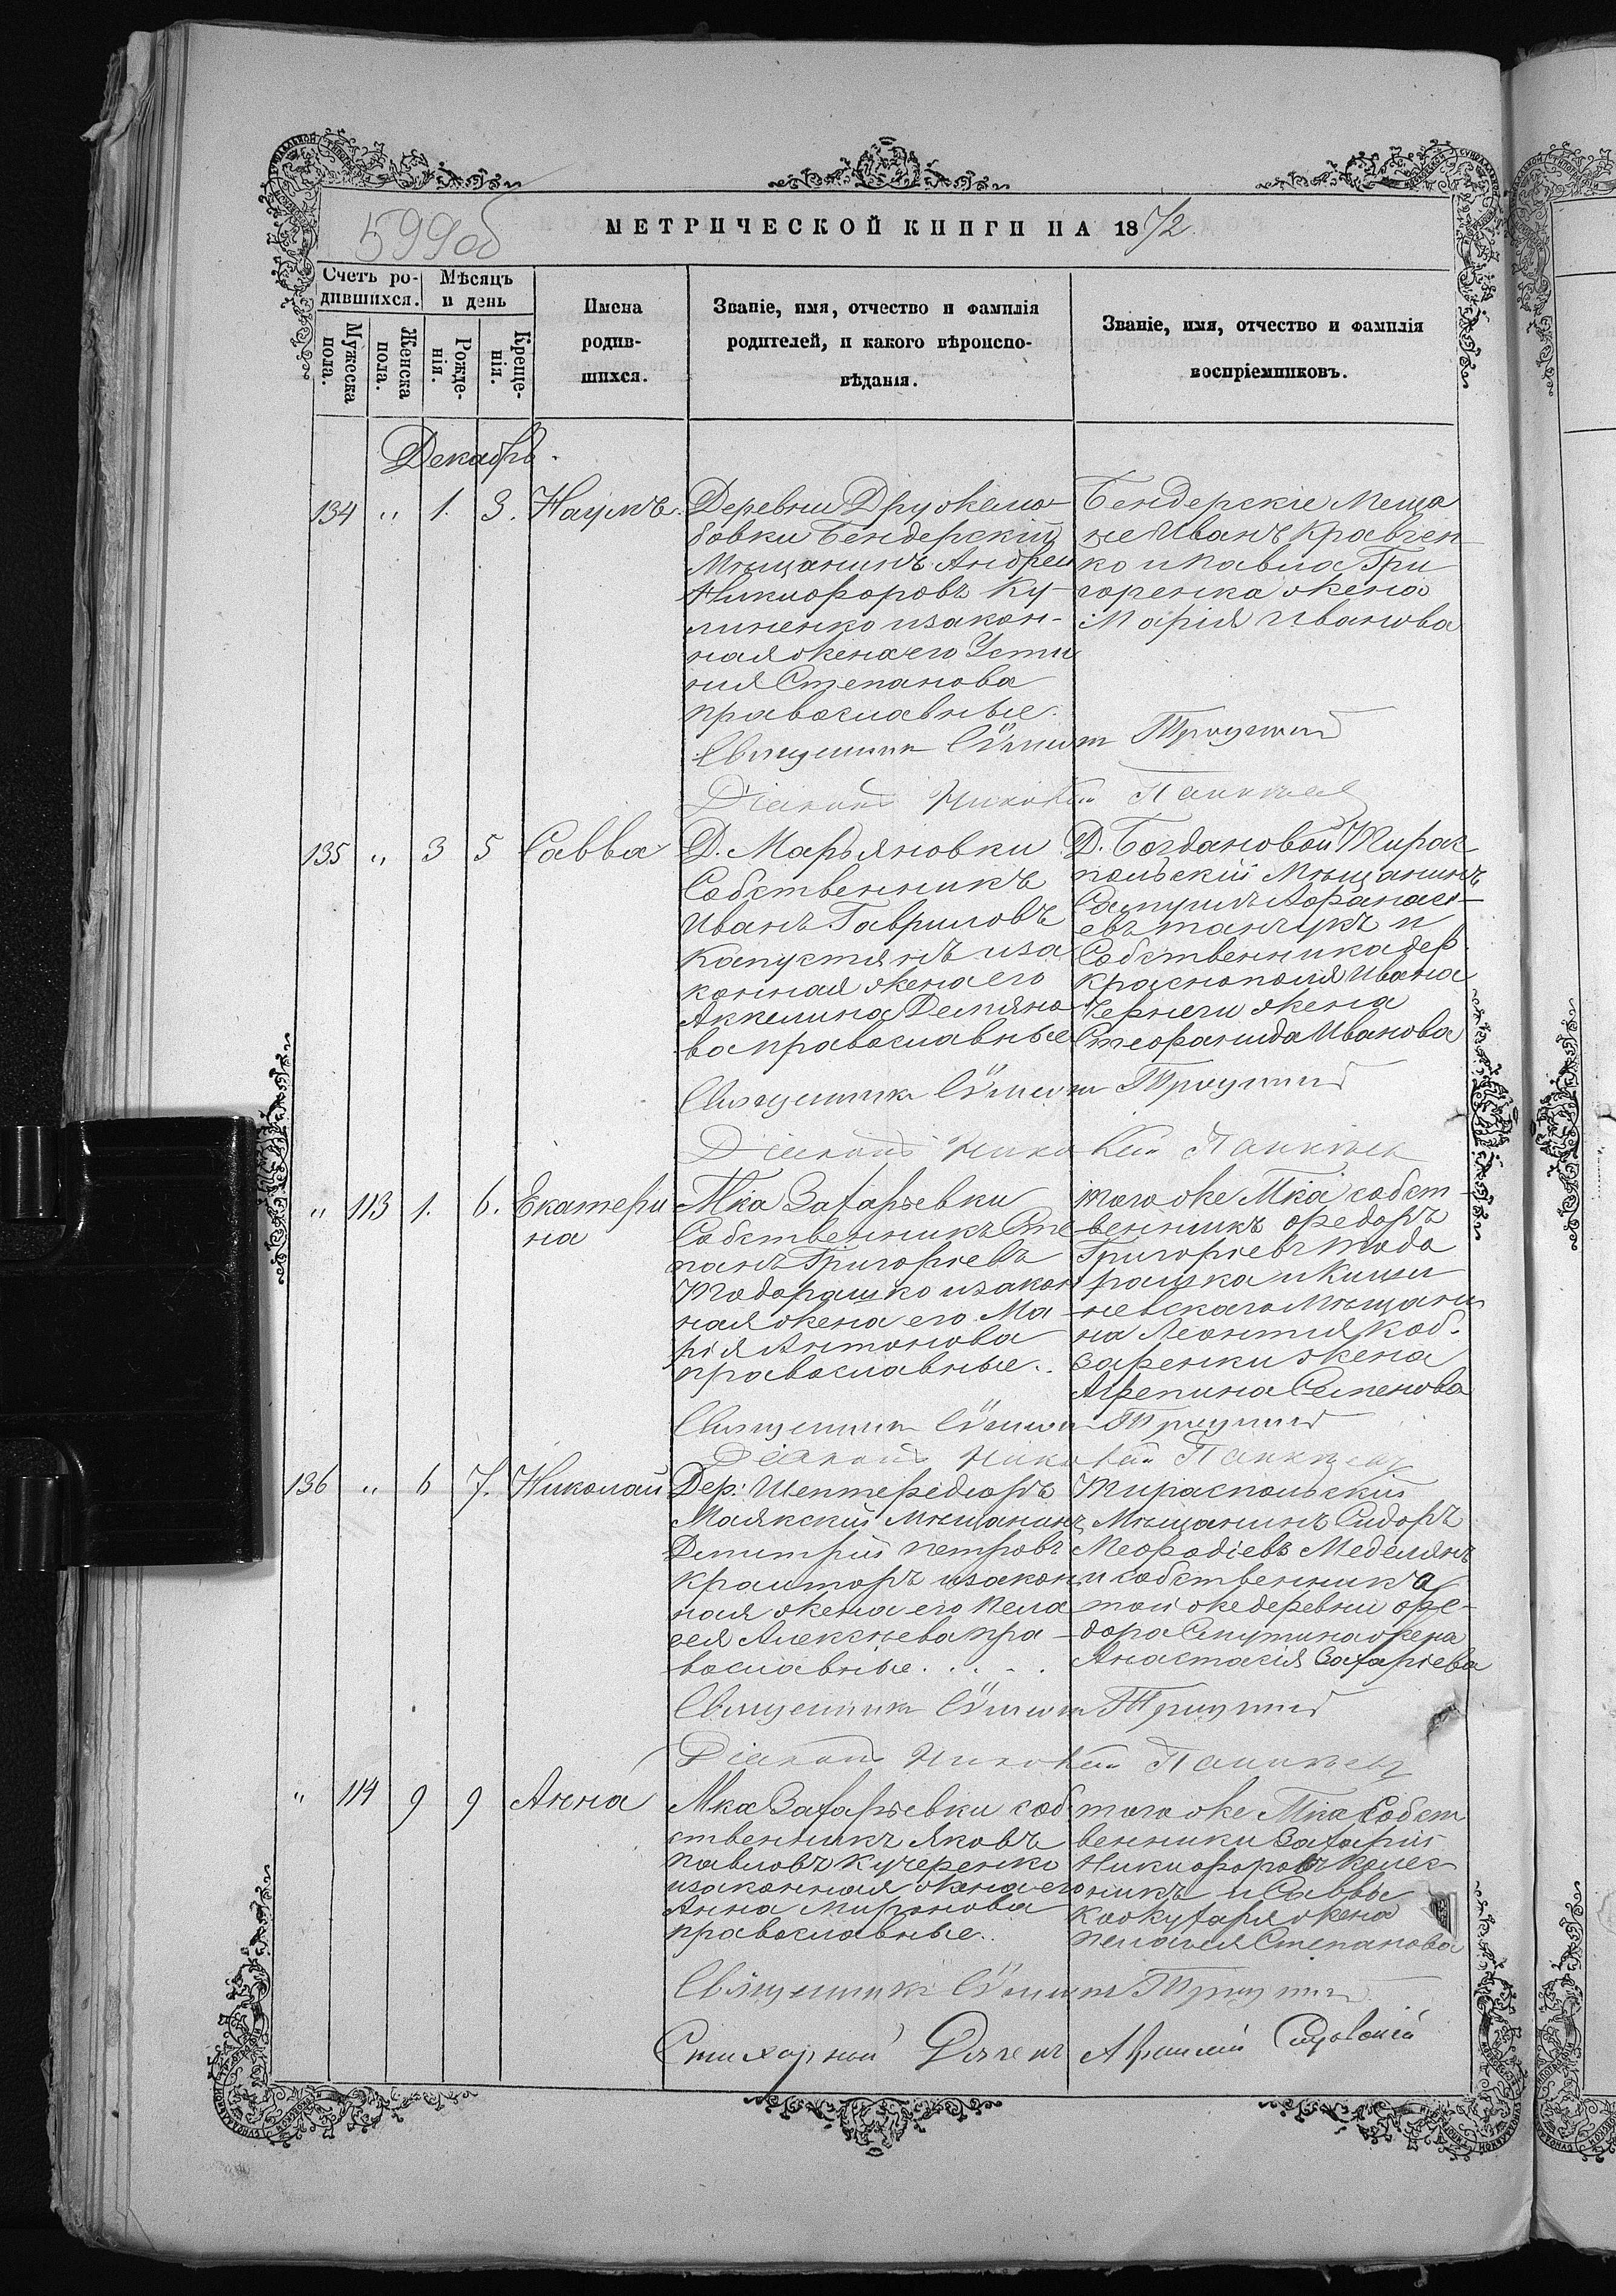 599об
МЕТРИЧЕСКОЙ КНИГИ НА 1872.
Счетъ ро-
дившихся.
Мѣсяцъ
и день
Мужеска
пола.
Женска
пола.
Рожде-
нія.
Креще-
нія.
Имена
родив-
шихся.
Званіе, имя, отчество и фамилія
родителей, и какого вѣроиспо-
вѣданія.
Званіе, имя, отчество и фамилія
воспріемниковъ.
Декабрь.
134 " 1. 3. Наумъ.
Деревни Дружелю-
бовки Бендерскій
Мѣщанинъ Андрей
Никифоровъ Ку-
линенко и закон-
ная жена его Усти
нія Степанова
православные.
Бендерскіе Меща
не Иванъ Кравчен
ко и Павла Гри
горенка жена
Марія Иванова
Священник
Діаконъ Николай
135 " 3 5 Савва
Д. Марьяновки
Собственникъ
Иванъ Гавриловъ
Капустянъ и за
конная жена его
Аккелина Демяно
ва православные
Д. Богдановой Тирас
польскій Мѣщанинъ
Самуилъ Афанась-
евъ танчукъ и
Собственника дер
Краснополя Ивана
Чернеги жена
Стефанида Иванова
Священник
Діаконъ Николай
" 113 1. 6. Екатери
на
М-ка Захарьевки
Собственникъ Сте
панъ Григорьевъ
Тодорашко и закон
ная жена его Ма-
рія Антонова
православные.
того же М-ка собст-
венникъ Федоръ
Григорьевъ Тодо
рашка и Киши
невскаго Мѣщани
на Леонтія Коб-
заренки жена
Агрепина Семенова
Священник
Діаконъ Николай
136 " 6 7. Николай
Дер: Шептередюръ
Маякскій мѣщанинъ
Димитрій Петровъ
Крайторъ и закон
ная жена его Пела
гея Алексѣева пра-
вославные.
Тираспольскій
Мѣщанинъ Сидоръ
Мефодіевъ Меделянъ
и собственника
той же деревни Фе-
дора Слутина жена
Анастасія Захаріева
Священник
Діаконъ Николай
" 114 9 9 Анна
М-ка Захарьевки соб
ственникъ Яковъ
Павловъ Кучеренко
и законная жена его
Анна Миронова
православные.
того же М-ка Собст
венники Захарій
Никифоровъ Колес
никъ и Саввы
Кожухаря жена
Пелагея Степанова
Священникъ
Стихарный Дячекъ